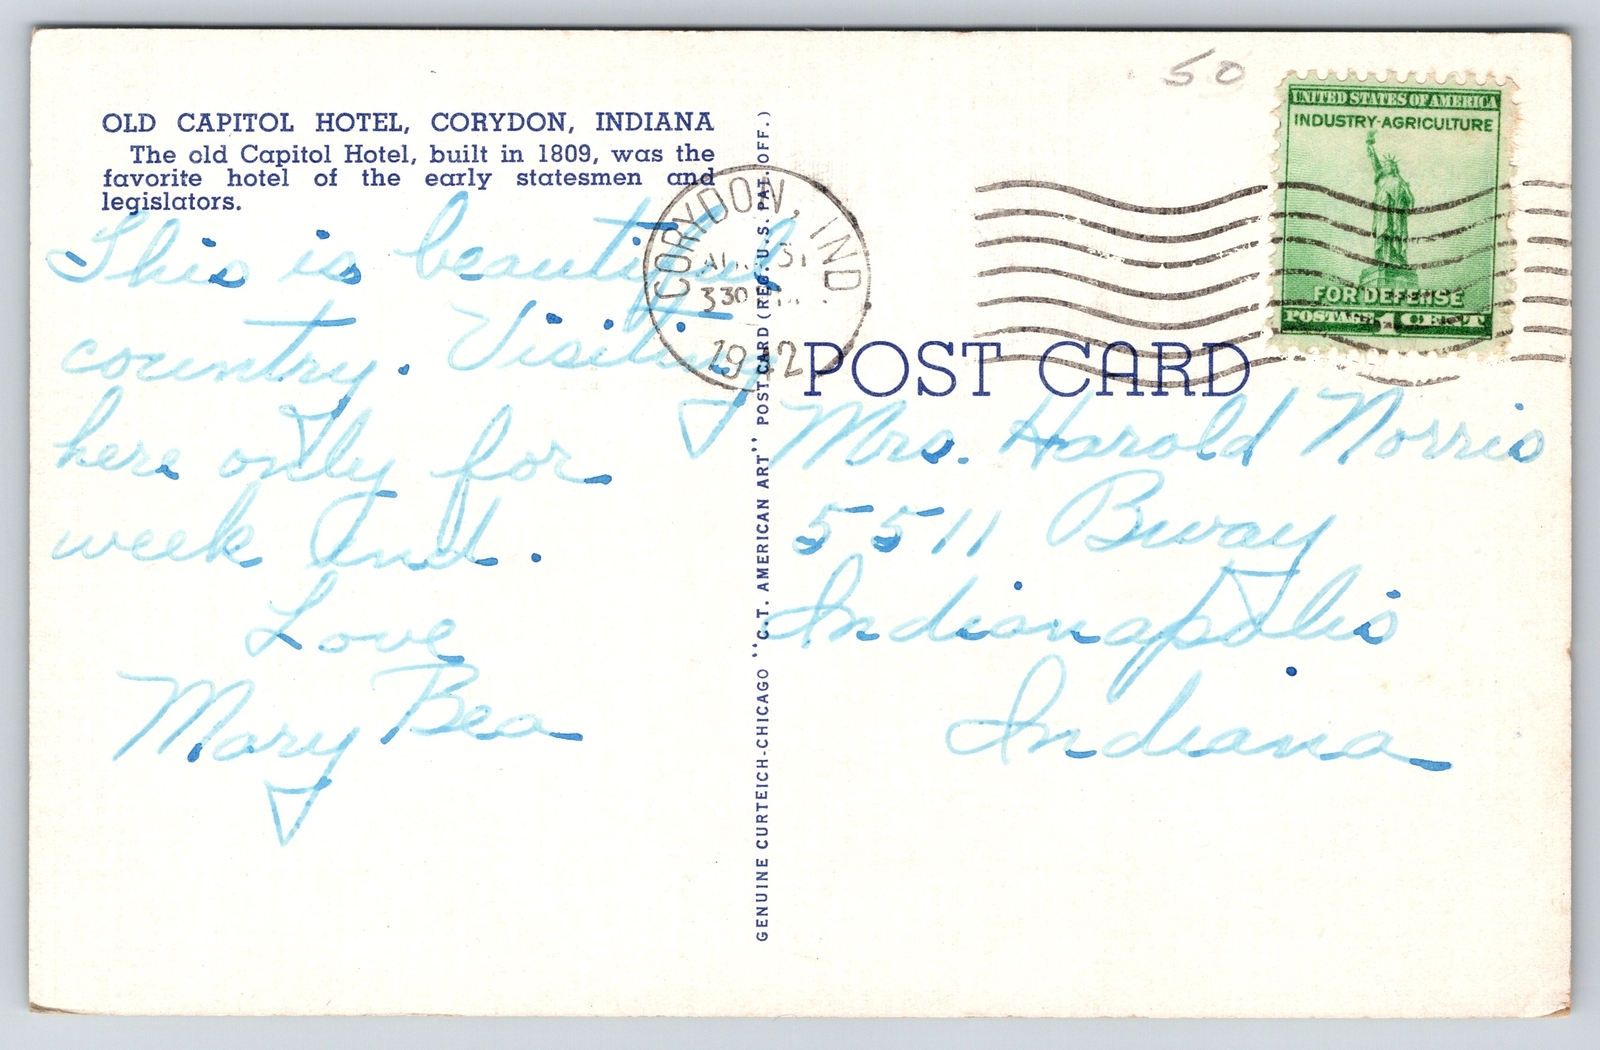 50
OLD CAPITOL HOTEL, CORYDON, INDIANA
The old Capitol Hotel, built in 1809, was the
favorite hotel of the early statesmen and
legislators.
This is beautiful
country. Visiting
here only for
week End.
Love
Mary Bea
GENUINE CURTEICH-CHICAGO "C.T. AMERICAN ART" POST CARD (REG. U.S. PAT. OFF.)
CORYDON, IND.
31
3 30
1942
UNITED STATES OF AMERICA
INDUSTRY-AGRICULTURE
FOR DEFENSE
POSTAGE 1 CENT
POST CARD
Mrs. Harold Norris
5511 Bway
Indianapolis
Indiana